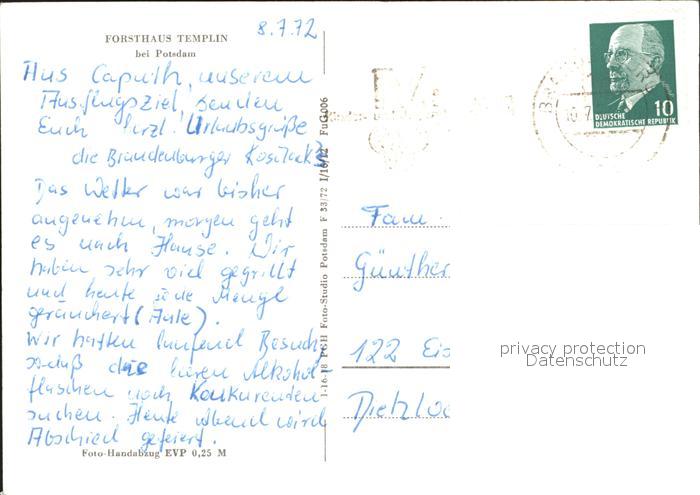 FORSTHAUS TEMPLIN
bei Potsdam
8.7.72
Aus Caputh, unserem
Ausflugsziel, senden
Euch herzl. Urlaubsgrüße
die Brandenburger
Das Wetter war bisher
angenehm, morgen geht
es nach Hause. Wir
haben sehr viel gegrillt
und heute eine Menge
geräuchert (Aale).
Wir hatten laufend Besuch,
sodaß die leeren Alkohol
flaschen noch Konkurenten
suchen. Heute abend wird
Abschied gefeiert.
Foto-Handabzug EVP 0,25 M
1-16-18 PGH Foto-Studio Potsdam F 33/72 I/16/12 FuG 006
10
DEUTSCHE
DEMOKRATISCHE REPUBLIK
Fam.
Günther
122 Eis
Dietzloe
privacy protection
Datenschutz